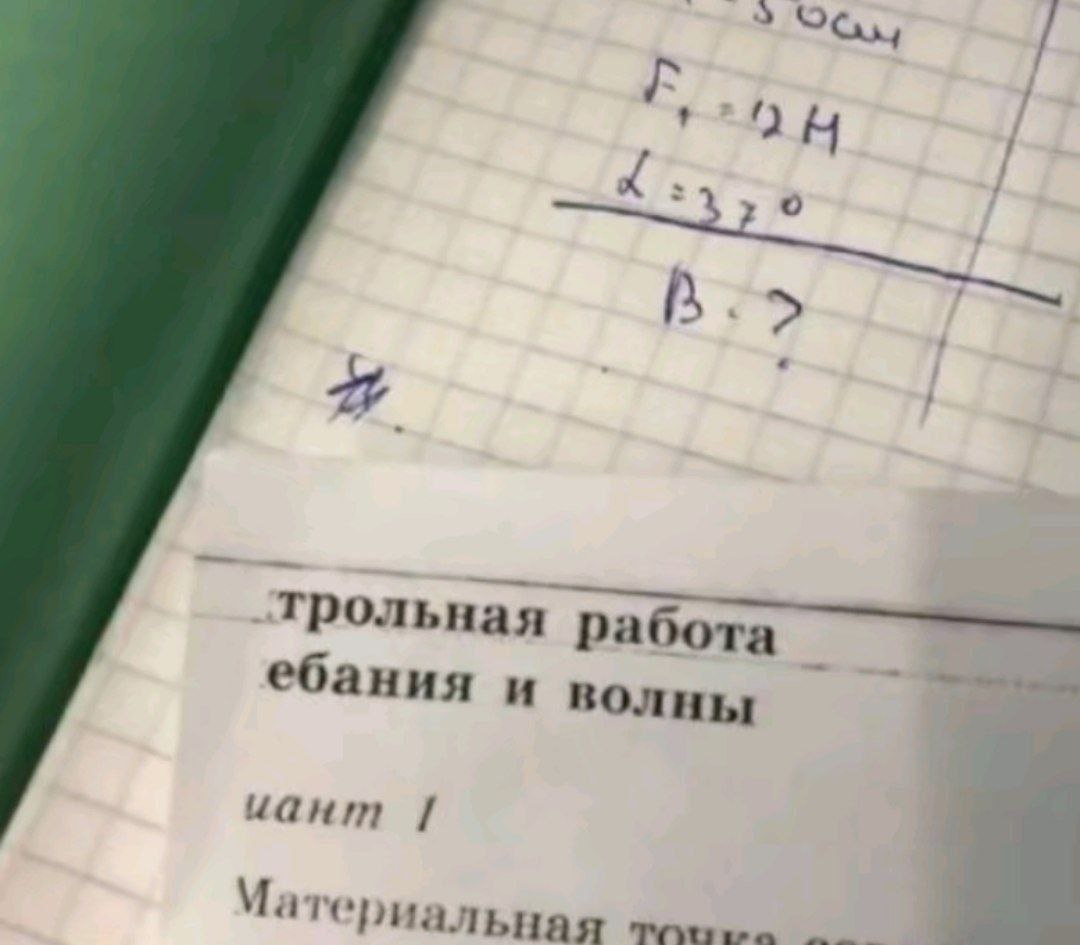 50см
F₁ = 12 Н
α = 37°
В - ?
трольная работа
ебания и волны
иант 1
Материальная точка